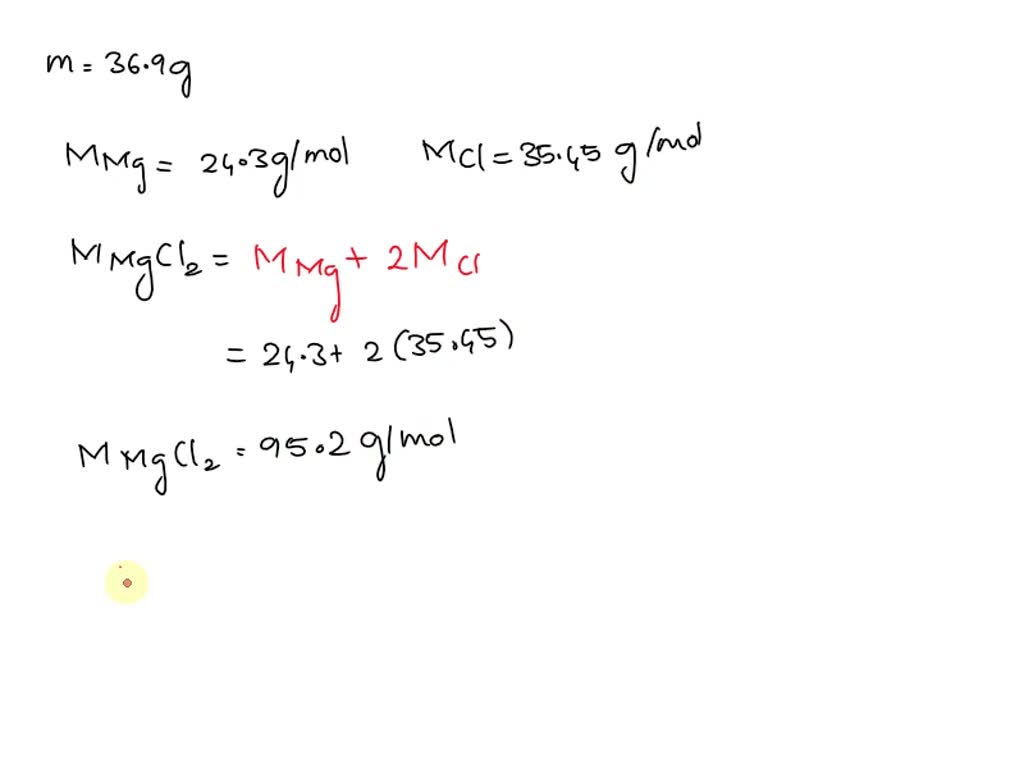 m = 36.9g
MMg = 24.3g/mol MCl = 35.45 g/mol
MMgCl₂ = MMg + 2MCl
= 24.3 + 2(35.45)
MMgCl₂ = 95.2 g/mol